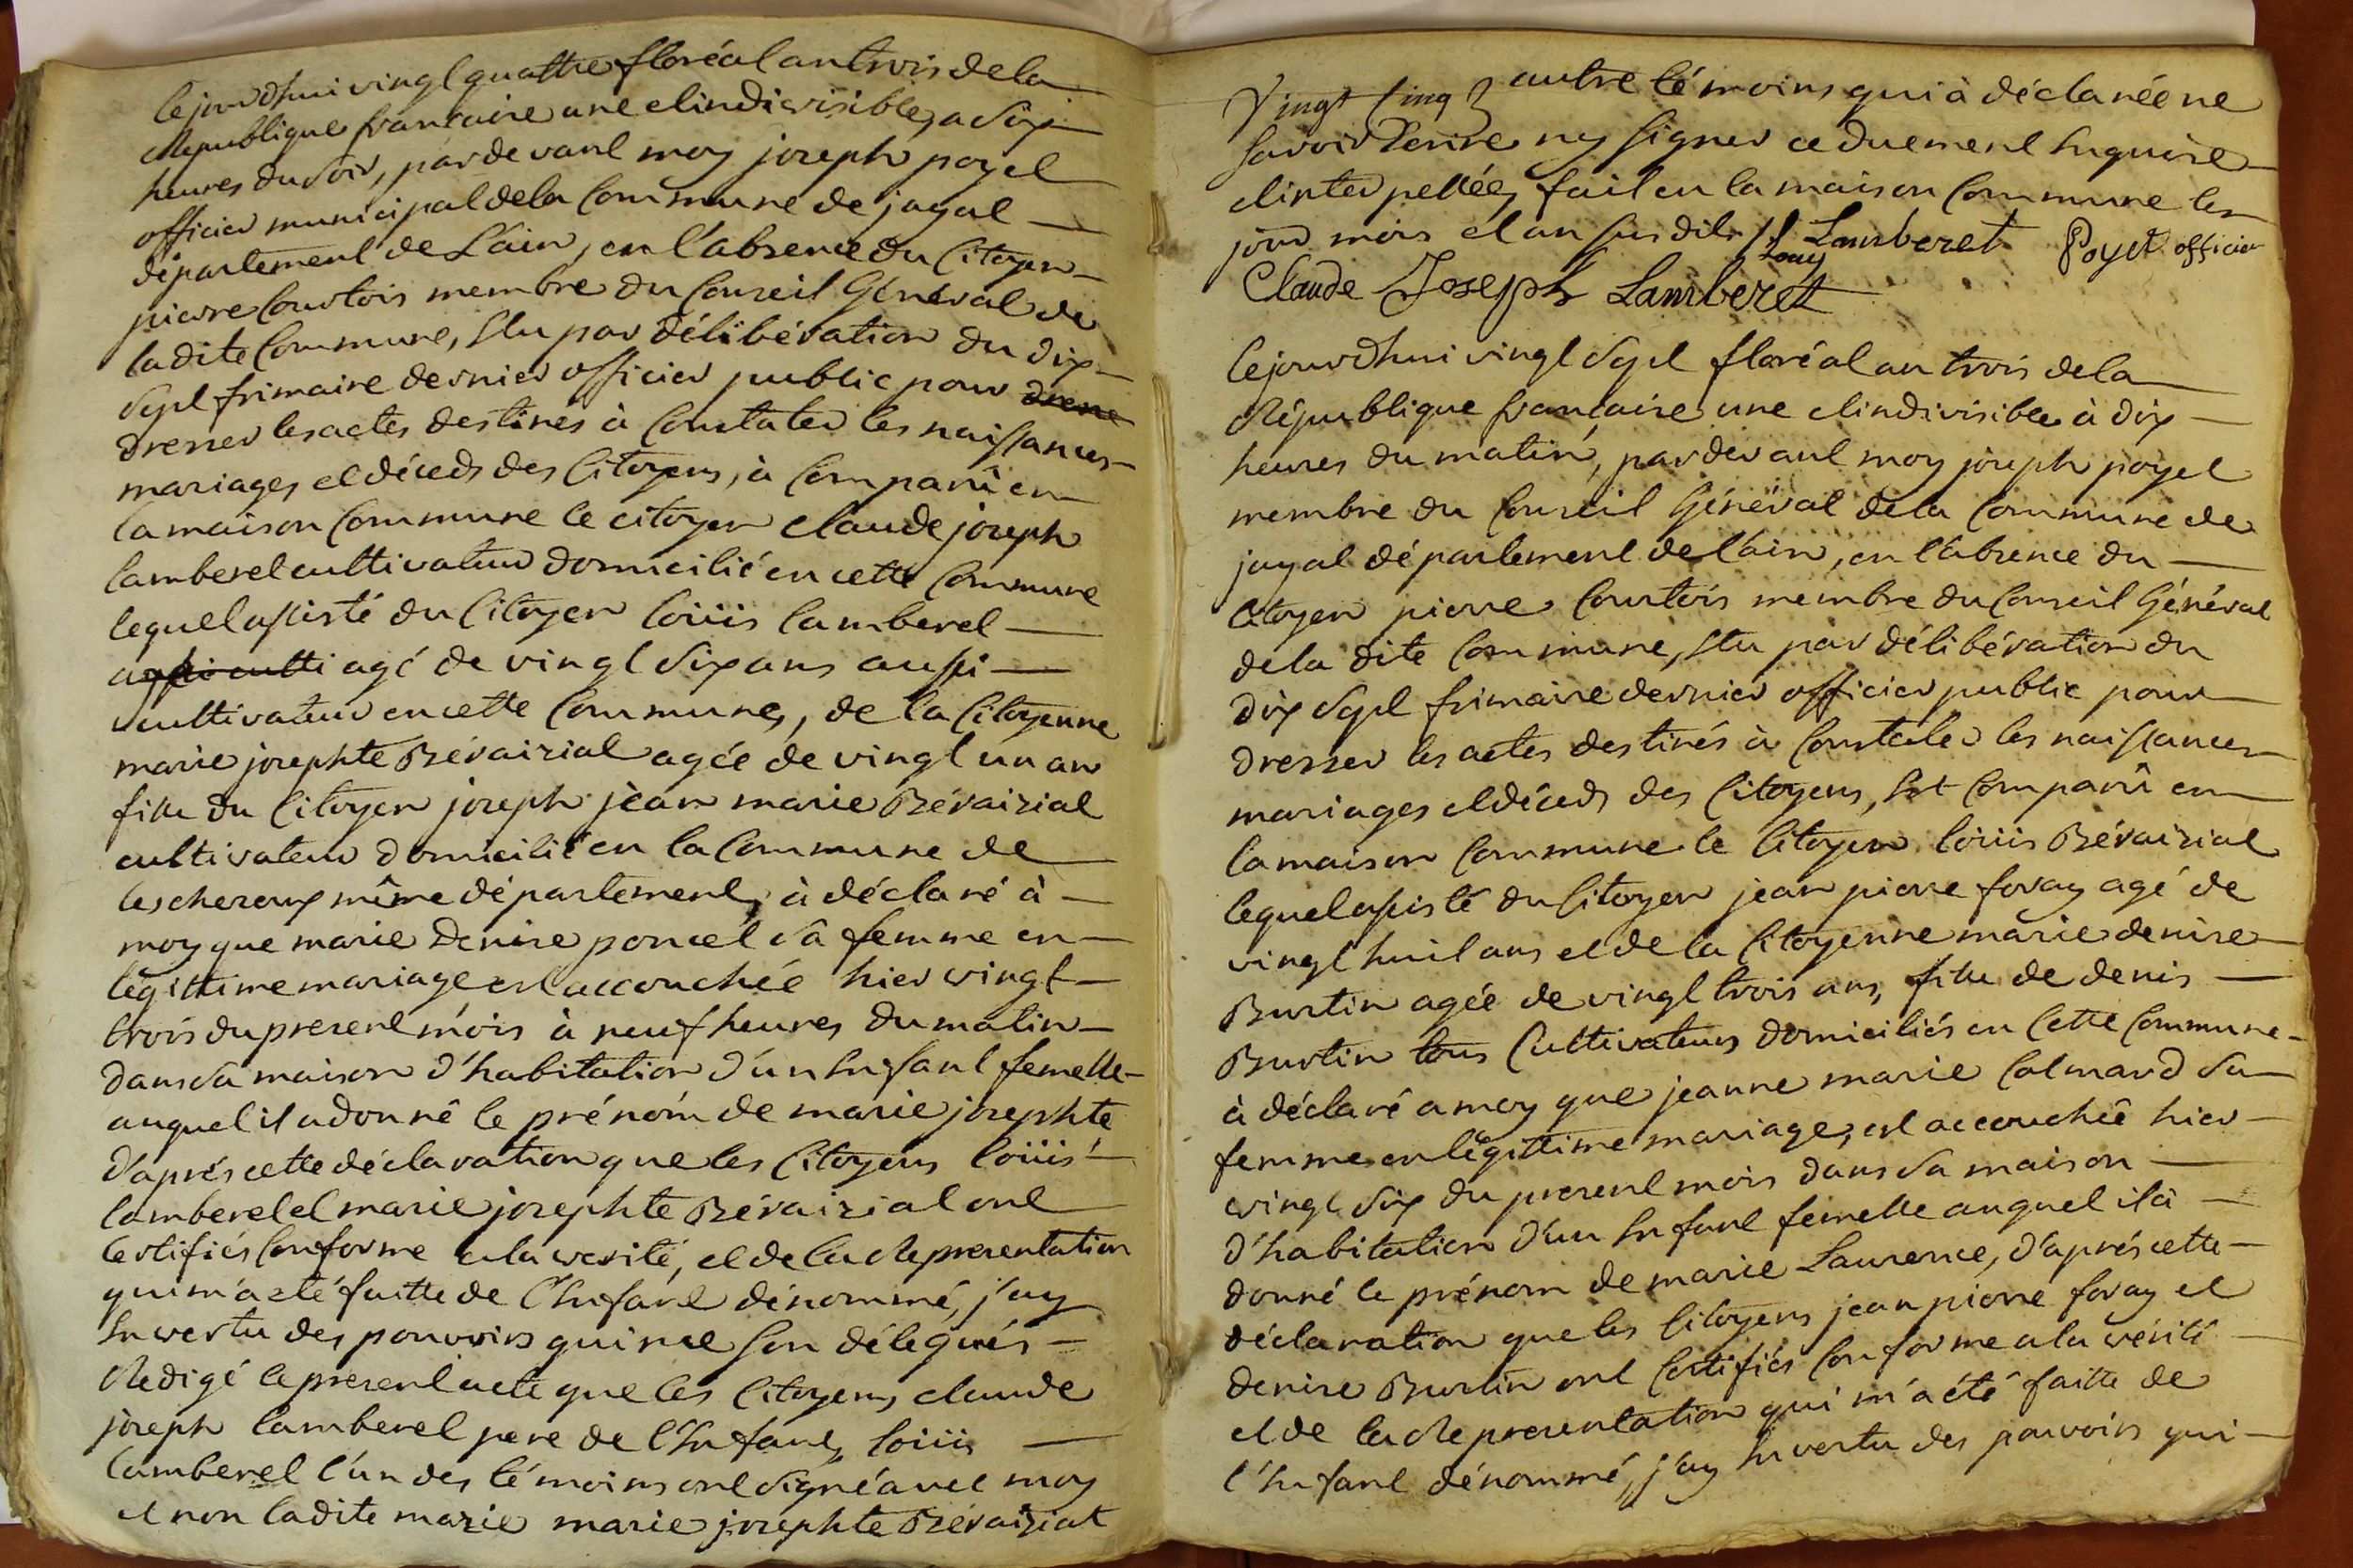 Cejourdhui vingt quattre floréal an trois de la
Republique francaise une et indivisible, a six
heures du soir, pardevant moy joseph poyet
officier municipal de la Commune de jayat
département de L'ain, en l'absence du Citoyen
pierre Courtois membre du Conseil Général de
la dite Commune, Elu par délibération du dix
sept frimaire dernier officier public pour
dresser les actes destines à Constater les naissances
mariages et décèds des Citoyens, à Comparû en
la maison Commune le citoyen claude joseph
lamberet cultivateur domicilié en cette Commune
lequel assisté du Citoyen loüis lamberet
agé de vingt six ans aussi
cultivateur en cette Commune, de la Citoyenne
marie josephte Bévaiziat agée de vingt un an
fille du Citoyen joseph jèan marie Bévaiziat
cultivateur domicilié en la Commune de
lescheroux même département, à déclaré à
moy que marie Denise poncet sâ femme en
légittime mariage est accouchée hier vingt
trois du present mois à neuf heures du matin
dans sa maison d'habitation d'un Enfant femelle
auquel il a donné le prénom de marie josephte
d'aprés cette déclaration que les Citoyens loüis
lamberet et marie josephte Bévaiziat ont
Certifiés Conforme a la verité, et de la Representation
qui m'a eté faitte de l'Enfant dénommé, j'ay
En vertu des pouvoirs qui me son délegués
Redigé le present acte que les Citoyens claude
joseph lamberet pere de l'Enfant, loüis
lamberet l'un des témoins ont signé avec moy
et non la dite marie marie josephte Bévaiziat
Vingt Cinq autre témoins qui à déclarée ne
savoir Ecrire ny signer ce duement Enquise
et interpellée, fait en la maison Commune les
jour mois et an susdits Louy Lamberet Poyet officier
Claude Joseph Lamberet
Cejourdhui vingt sept floréal an trois de la
République francaise une et indivisible à dix
heures du matin, pardevant moy joseph poyet
membre du Conseil Général de la Commune de
jayat département de l'ain, en l'absence du
Citoyen pierre Courtois membre du Conseil Général
de la dite Commune, Elu par délibération du
dix sept frimaire dernier officier public pour
dresser les actes destinés à Constater les naissances
mariages et décèds des Citoyens, Est Comparû en
la maison Commune le Citoyen loüis Bévaiziat
lequel assisté du Citoyen jean pierre foray agé de
vingt huit ans et de la Citoyenne marie denise
Burtin agée de vingt trois ans, fille de denis
Burtin tous Cultivateurs domiciliés en Cette Commune
à déclaré a moy que jeanne marie Calmard sa
femme en légittime mariage, est accouchée hier
vingt six du present mois dans sa maison
d'habitation d'un Enfant femelle auquel il à
donné le prénom de marie Laurence, d'aprés cette
déclaration que les Citoyens jean pierre foray et
denise Burtin ont Certifiés Conforme a la vérité
et de la Representation qui m'a été faitte de
l'Enfant dénommé, j'ay En vertu des pouvoirs qui